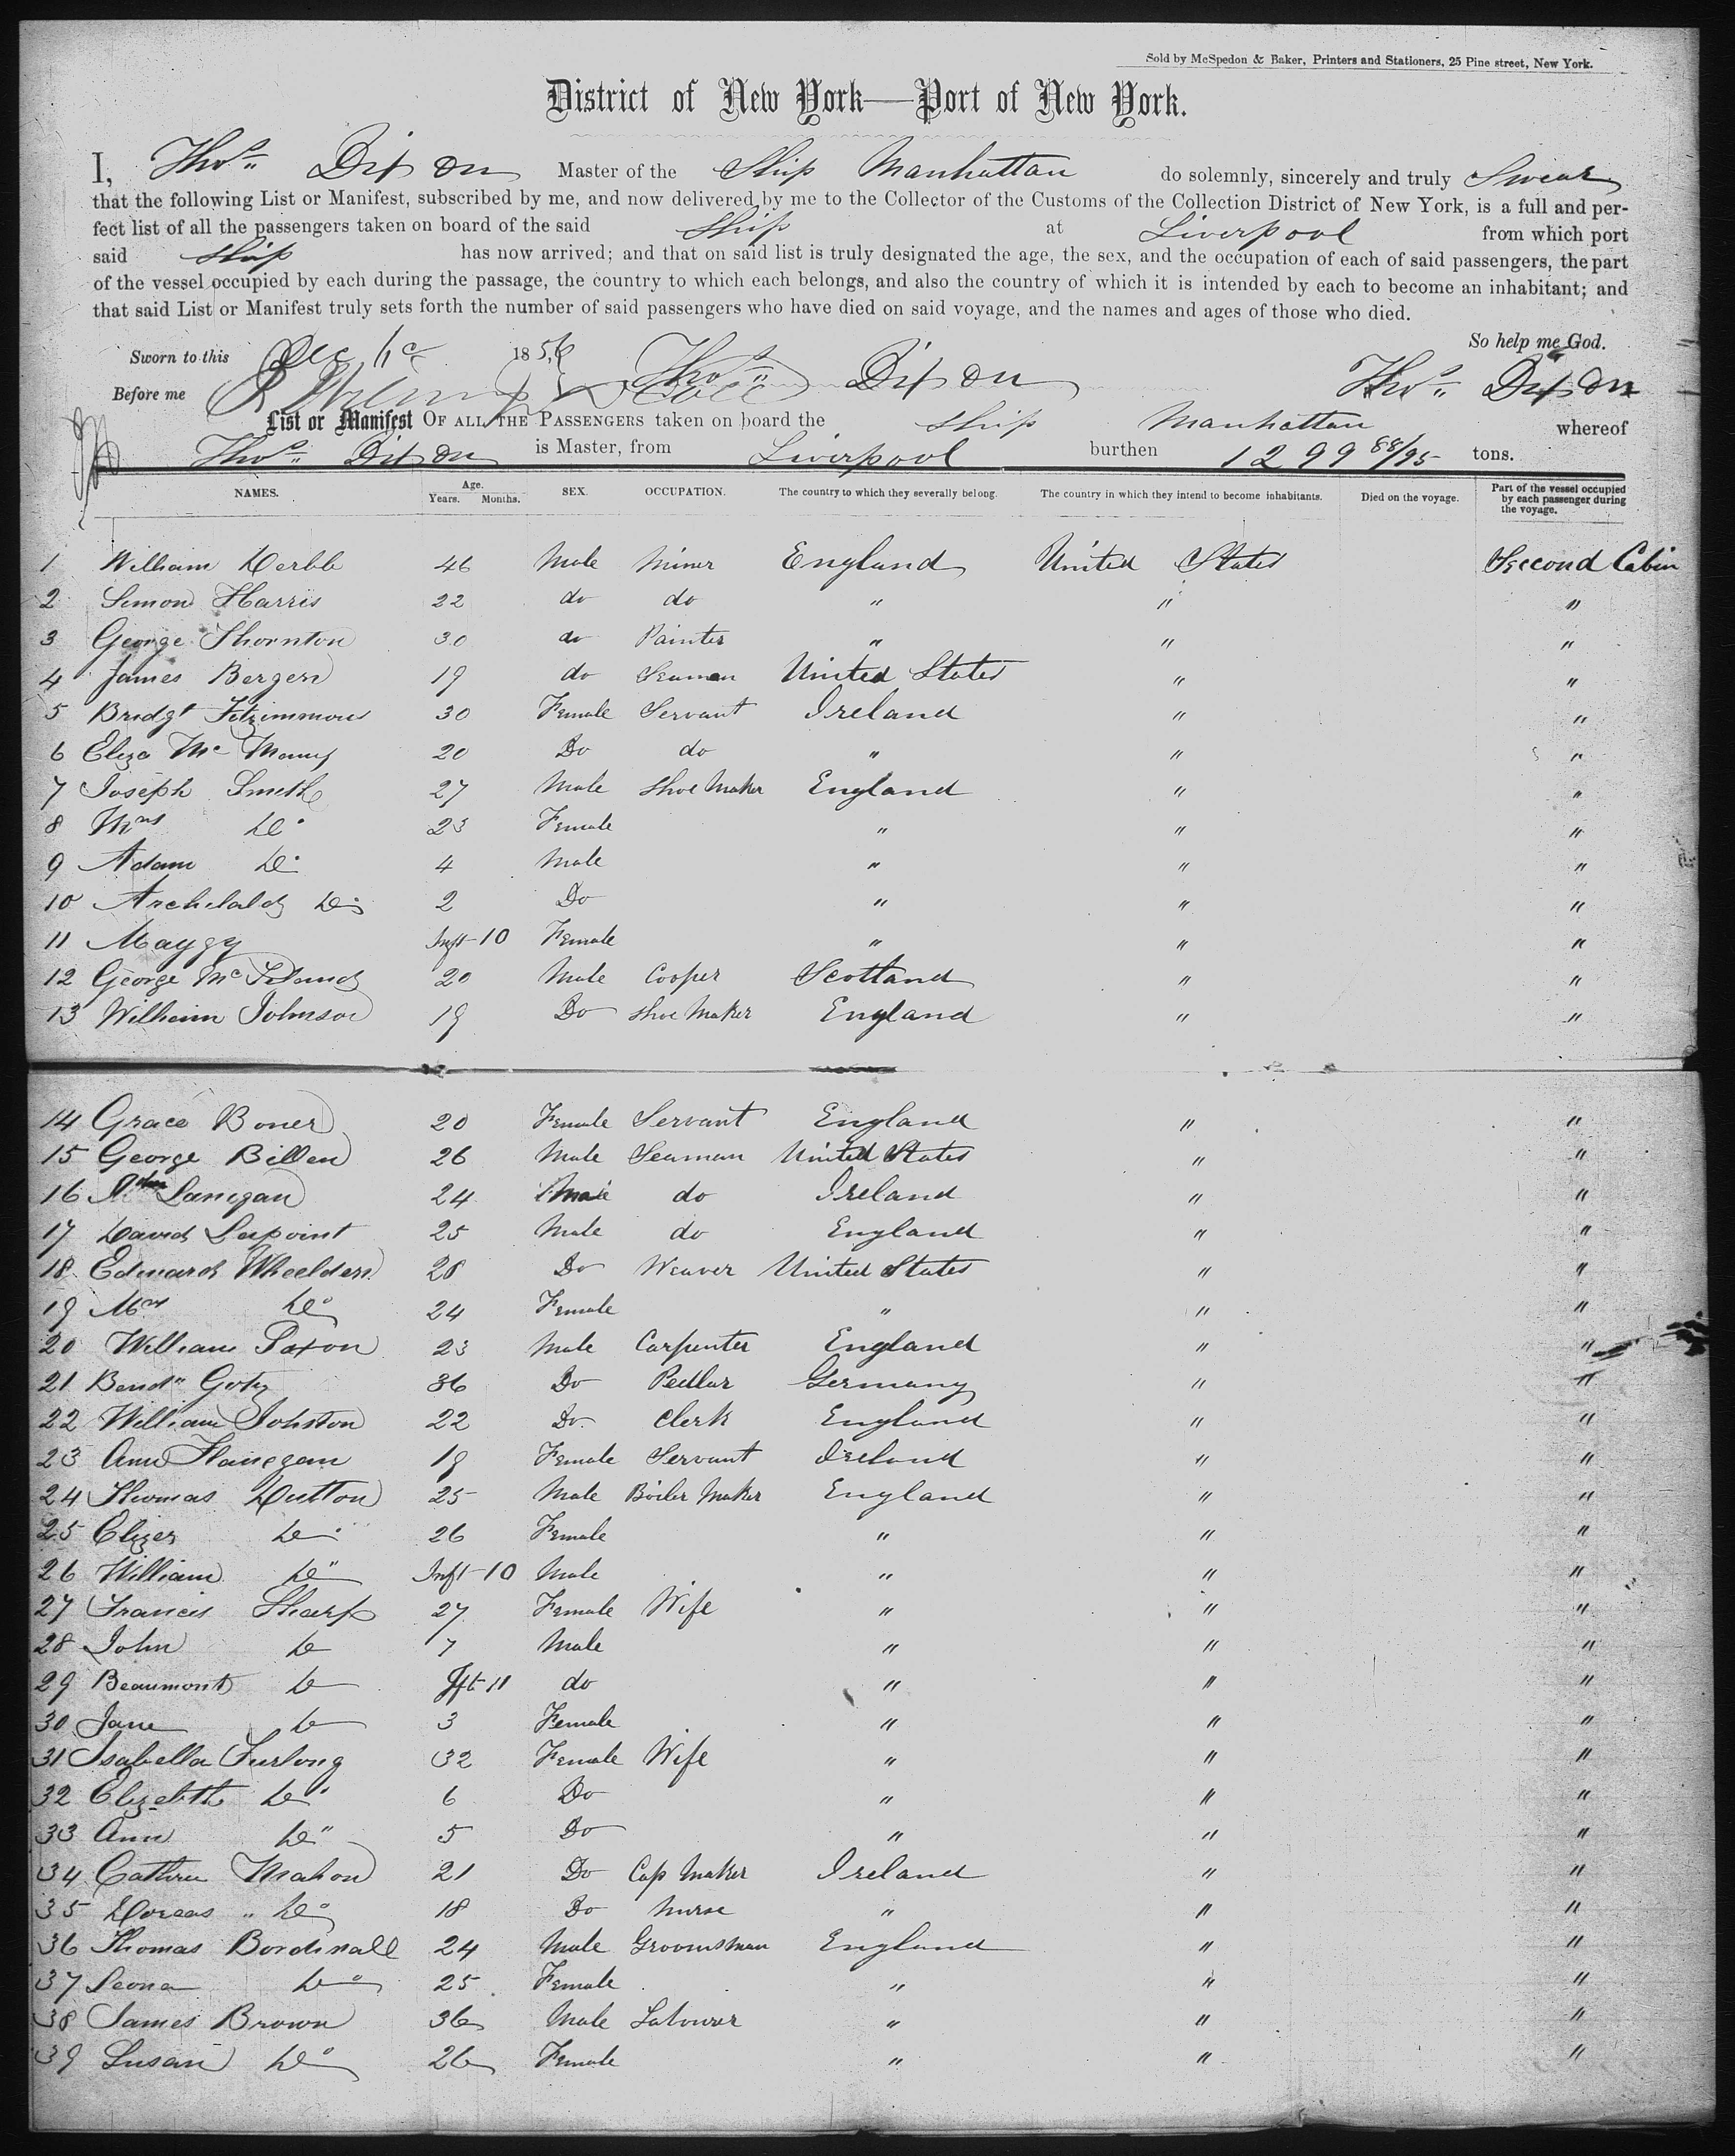 Sold by McSpedon & Baker, Printers and Stationers, 25 Pine street, New York.
District of New York—Port of New York.
I, Thos. Dixon Master of the Ship Manhattan do solemnly, sincerely and truly Swear
that the following List or Manifest, subscribed by me, and now delivered by me to the Collector of the Customs of the Collection District of New York, is a full and per-
fect list of all the passengers taken on board of the said Ship at Liverpool from which port
said Ship has now arrived; and that on said list is truly designated the age, the sex, and the occupation of each of said passengers, the part
of the vessel occupied by each during the passage, the country to which each belongs, and also the country of which it is intended by each to become an inhabitant; and
that said List or Manifest truly sets forth the number of said passengers who have died on said voyage, and the names and ages of those who died.
So help me God.
Sworn to this Dec 1856 Thos. Dixon Thos. Dixon
Before me
List or Manifest OF ALL THE PASSENGERS taken on board the Ship Manhattan whereof
Thos. Dixon is Master, from Liverpool burthen 1299 88/95 tons.
NAMES. Age. Years. Months. SEX. OCCUPATION. The country to which they severally belong. The country in which they intend to become inhabitants. Died on the voyage. Part of the vessel occupied by each passenger during the voyage.
1 William 46 Male Miner England United States Second Cabin
2 Simon Harris 22 do do " " "
3 George Thornton 30 do Painter " " "
4 James Bergen 19 do Seaman United States " "
5 Bridgt Fitzimmons 30 Female Servant Ireland " "
6 Eliza Mc 20 Do do " " "
7 Joseph Smith 27 Male Shoe Maker England " "
8 Mrs Do 23 Female " " "
9 Adam Do 4 Male " " "
10 Archibald Do 2 Do " " "
11 Maygy Inft-10 Female " " "
12 George 20 Male Cooper Scotland " "
13 William Johnson 19 Do Shoe Maker England " "
14 Grace Boner 20 Female Servant England " "
15 George Billen 26 Male Seaman United States " "
16 Lanigan 24 Male do Ireland " "
17 David Lapoint 25 Male do England " "
18 Edward Wheelden 28 Do Weaver United States " "
19 Mrs Do 24 Female " " "
20 William Saxon 23 Male Carpenter England " "
21 36 Do Pedlar Germany " "
22 William Johston 22 Do Clerk England " "
23 Ann Flanegan 19 Female Servant Ireland " "
24 Thomas Dutton 25 Male Boiler Maker England " "
25 Elizer Do 26 Female " " "
26 William Do Inft-10 Male " " "
27 Francis Sharp 27 Female Wife " " "
28 John Do 7 Male " " "
29 Beaumont Do Ift-11 do " " "
30 Jane Do 3 Female " " "
31 Isabella Furlong 32 Female Wife " " "
32 Elizabeth Do 6 Do " " "
33 Ann Do 5 Do " " "
34 Mahon 21 Do Cap Maker Ireland " "
35 Dorcas " Do 18 Do Nurse " " "
36 Thomas Bordinall 24 Male Groomsman England " "
37 Leona Do 25 Female " " "
38 James Brown 36 Male Labourer " " "
39 Susan Do 26 Female " " "